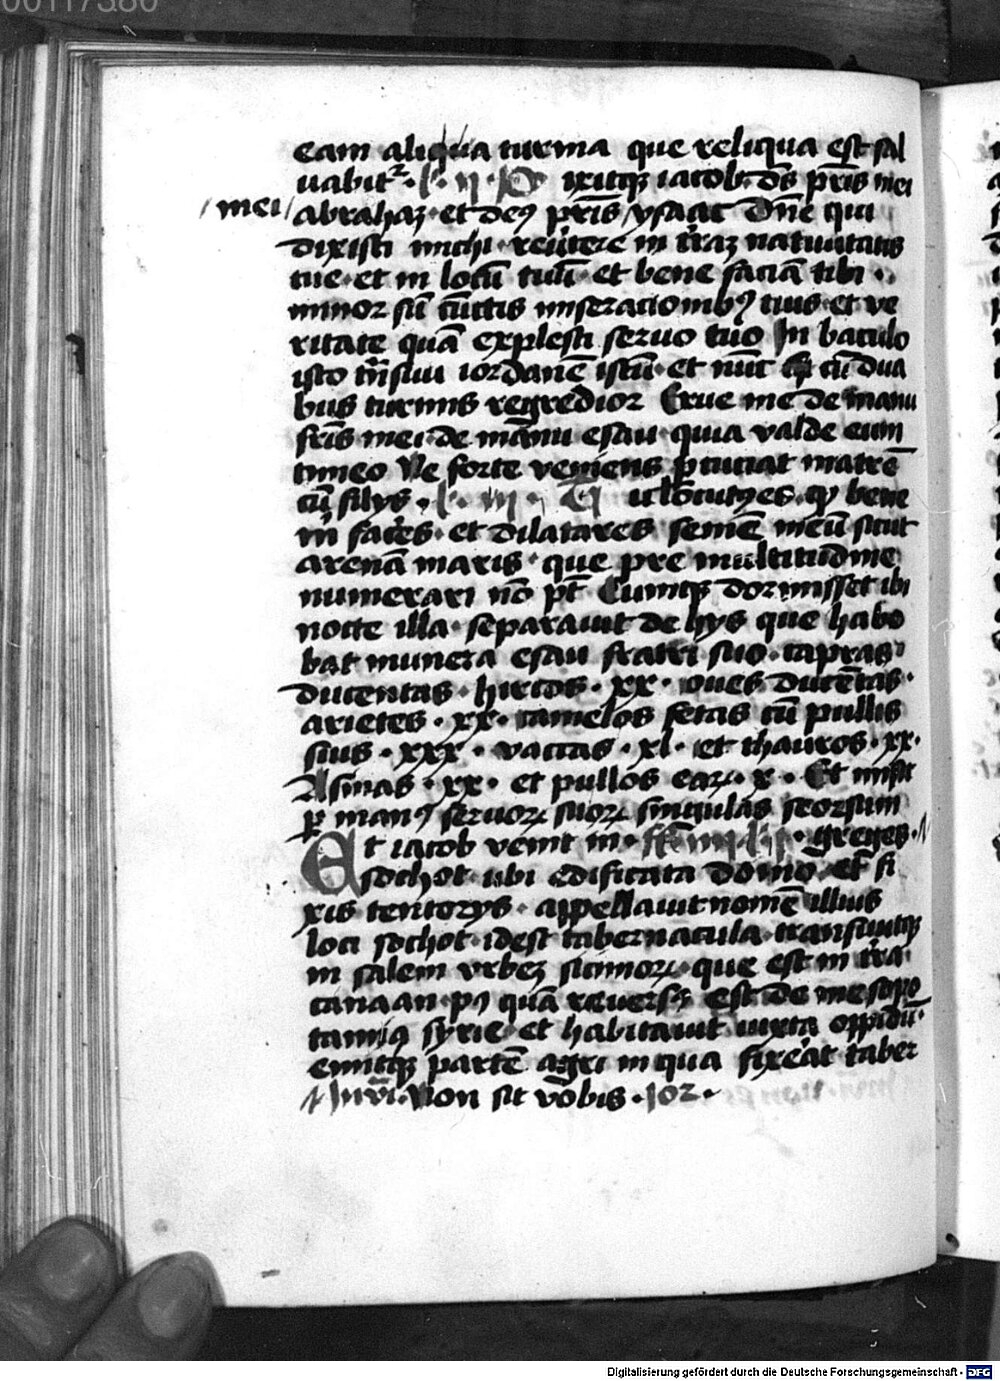 00117380
eam aliqua turma que reliqua est sal
uabit᷑ · l. ij. D ixitqꝫ iacob · ds̄ pr̄is mei
/mei/ abrahaꝫ · et deꝰ pr̄is ysaac Dn̄e qui
dixisti michi · reu̓tere in t̓raꝫ natiuitatis
tue · et in locū tuū · et bene faciā tibi ·
minor sū cūctis miseracionibꝰ tuis · et ve
ritate quā explesti seruo tuo In baculo
isto tn̄siui iordanē istū · et nūc cū dua
bus turmis regredior Erue me de manu
fr̄is mei · de manu esau · quia valde eum
timeo Ne forte veniens ꝑcuciat matrē
cū filijs · l. iij. T u locutꝰ es · ꝙ bene
m̓ faceres · et dilatares semē meū sicut
arenā maris · que pre multitudine
numerari nō pt̄ Cumqꝫ dormisset ibi
nocte illa · separauit de hijs que habe
bat munera esau fratri suo · capras
ducentas · hircos · xx · oues ducētas ·
arietes · xx · camelos fetas cū pullis
suis · xxx · vaccas · xl · et thauros · xx ·
Asinas · xx · et pullos eaꝝ · x · Et misit
ꝑ manꝰ seruoꝝ suoꝝ singulas seorsum
Et iacob venit in · greges ·
sochot · ubi edificata domo et fi
xis tentorijs · appellauit nomē illius
loci sochot · idest tabernacula · transiuitqꝫ
in salem vrbeꝫ sicimoꝝ · que est in t̓ra
canaan · pꝰ quā reuersꝰ est de mesopo
tamia syrie · et habitauit iuxta oppidū ·
emitqꝫ partē agri in qua fixerat taber
Inui. Non sit vobis · Jor ·
Digitalisierung gefördert durch die Deutsche Forschungsgemeinschaft · DFG